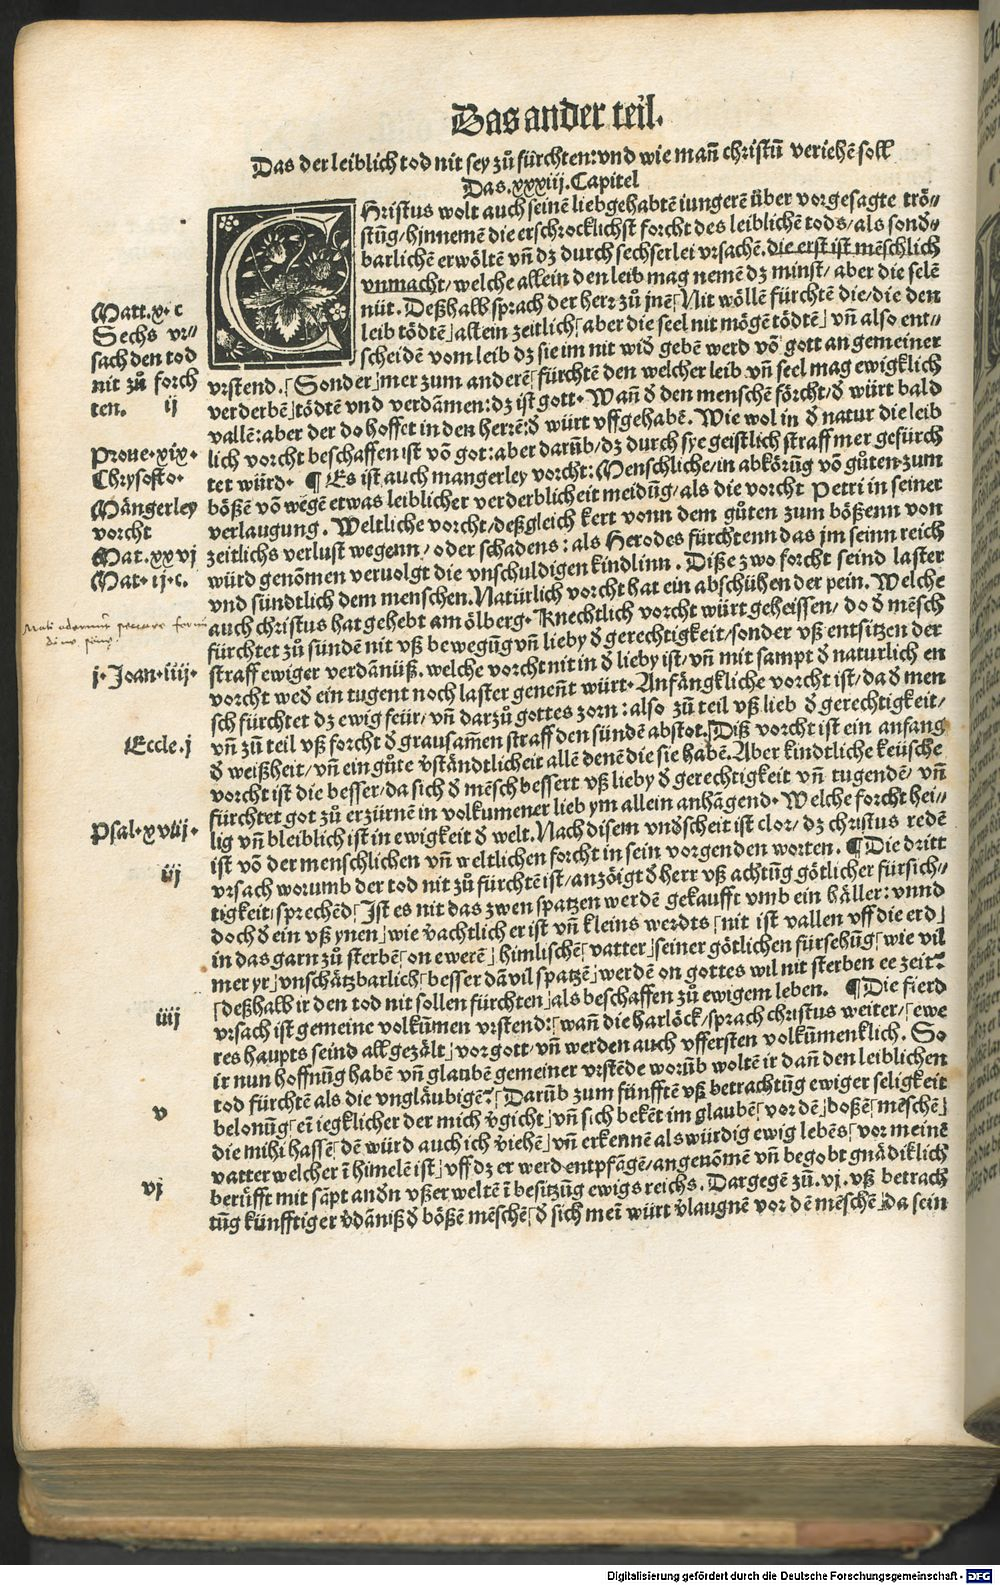 Das ander teil.
Das der leiblich tod nit sey zů fürchten: vnd wie mañ christū veriehē soll
Das .xxxiij. Capitel
CHristus wolt auch seinē liebgehabtē iungerē über vorgesagte trö⸗
stūg/hjnnemē die erschrocklichst forcht des leiblichē tods/als sond᷑⸗
barlichē erwöltē vñ dz durch sechserlei vrsachē. die erst ist mēschlich
vnmacht/welche allein den leib mag nemē dz minst/ aber die selē
nüt. Deßhalb sprach der herr zů jnē⌈Nit wöllē fürchtē die/die den
leib tödtē⌋allein zeitlich⌈aber die seel nit mögē tödtē⌋ vñ also ent⸗
scheidē vom leib dz sie im nit wid᷑ gebē werd vō gott an gemeiner
vrstend.⌈Sonder⌋mer zum anderē⌈fürchtē den welcher leib vñ seel mag ewigklich
verderbē⌋tödtē vnd verdāmen: dz ist gott. Wañ d᷑ den menschē förcht/d᷑ würt bald
vallē: aber der do hoffet in den herrē: d᷑ würt vffgehabē. Wie wol in d᷑ natur die leib
lich vorcht beschaffen ist vō got: aber darūb/dz durch sye geistlich straff mer gefürch
tet würd. ¶ Es ist auch mangerley vorcht: Menschliche/in abkörūg vō gůten zum
bößē vō wegē etwas leiblicher verderblicheit meidūg/als die vorcht Petri in seiner
verlaugung. Weltliche vorcht/deßgleich kert vonn dem gůten zum bößenn von
zeitlichs verlust wegenn/ oder schadens: als Herodes fürchtenn das jm seinn reich
würd genōmen vervolgt die vnschuldigen kindlinn. Diße zwo forcht seind laster
vnd sündtlich dem menschen. Natürlich vorcht hat ein abschühen der pein. Welche
auch christus hat gehebt am ölberg. Knechtlich vorcht würt geheissen/ do d᷑ mēsch
fürchtet zů sünden nit vß bewegūg vñ lieby d᷑ gerechtigkeit/sonder vß entsitzen der
straff ewiger verdānüß. welche vorcht nit in d᷑ lieby ist/ vñ mit sampt d᷑ naturlich en
vorcht wed᷑ ein tugent noch laster genent würt. Anfängkliche vorcht ist/da d᷑ men
sch fürchtet dz ewig feür/ vñ darzů gottes zorn: also zů teil vß lieb d᷑ gerechtigkeit/
vñ zů teil vß forcht d᷑ grausamen straff den sünden abstot.⌈Diß vorcht ist ein anfang
d᷑ weißheit/ vñ ein gůte v᷑ständtlicheit allē denē die sie habē. Aber kindtliche keüsche
vorcht ist die besser/da sich d᷑ mēsch bessert vß lieby d᷑ gerechtigkeit vñ tugendē/ vñ
fürchtet got zů erzürnē in volkumener lieb ym allein anhāgend. Welche forcht hei⸗
lig vñ bleiblich ist in ewigkeit d᷑ welt. Nach disem vnd᷑scheit ist clor/ dz christus redē
ist vō der menschlichen vñ weltlichen forcht in sein vorgenden worten. ¶ Die dritt
vrsach worumb der tod nit zů fürchtē ist/anzöigt d᷑ herr vß achtūg götlicher fürsich⸗
tigkeit⌋sprechēd⌈Ist es nit das zwen spatzen werdē gekaufft vmb ein häller: vnnd
doch d᷑ ein vß ynen⌋wie v᷑achtlich er ist vñ kleins werdts⌈nit ist vallen vff die erd⌋
in das garn zů sterbē⌈on ewerē⌋himlischē⌈vatter⌋seiner götlichen fürsehūg⌈wie vil
mer yr⌋vnschätzbarlich⌈besser dāvil spatzē⌋werdē on gottes wil nit sterben ee zeit?
⌈deßhalb ir den tod nit sollen fürchten⌋als beschaffen zů ewigem leben. ¶ Die fierd
vrsach ist gemeine volkūmen vrstend:⌈wañ die harlöck/sprach christus weiter/⌈ewe
res haupts seind all gezält⌋vor gott/ vñ werden auch vffersten volkūmenklich. So
ir nun hoffnūg habē vñ glaubē gemeiner vrstēde worūb woltē ir dañ den leiblichen
tod fürchtē als die vngläubigē? Darūb zum fünfftē vß betrachtūg ewiger seligkeit
belonūg⌈eī iegklicher der mich v᷑gicht⌋vñ sich bekēt im glaubē⌈vor dē⌋boßē⌈mēschē⌋
die mihi hassē⌈dē würd auch ich v᷑iehē⌋vñ erkennē als würdig ewig lebēs⌈vor meinē
vatter welcher ī himelē ist⌋vff dz er werd entpfāgē/angenōmē vñ begobt gnädiklich
berüfft mit sāpt and᷑n vßer weltē ī besitzūg ewigs reichs. Dargegē zū .vj. vß betrach
tūg künfftiger v᷑dāniß d᷑ bößē mēschē⌈d᷑ sich meī würt v᷑laugnē vor dē mēschē⌋da sein
Matt.x.c
Sechs vr⸗
sach den tod
nit zů forch
ten. ij
Proue.xix.
Chrysosto.
Mängerley
vorcht
Mat.xxvj
Mat.ij.c.
j.Joan.iiij.
Eccle.j
Psal.xviij.
iij
iiij
v
vj
Digitalisierung gefördert durch die Deutsche Forschungsgemeinschaft - DFG